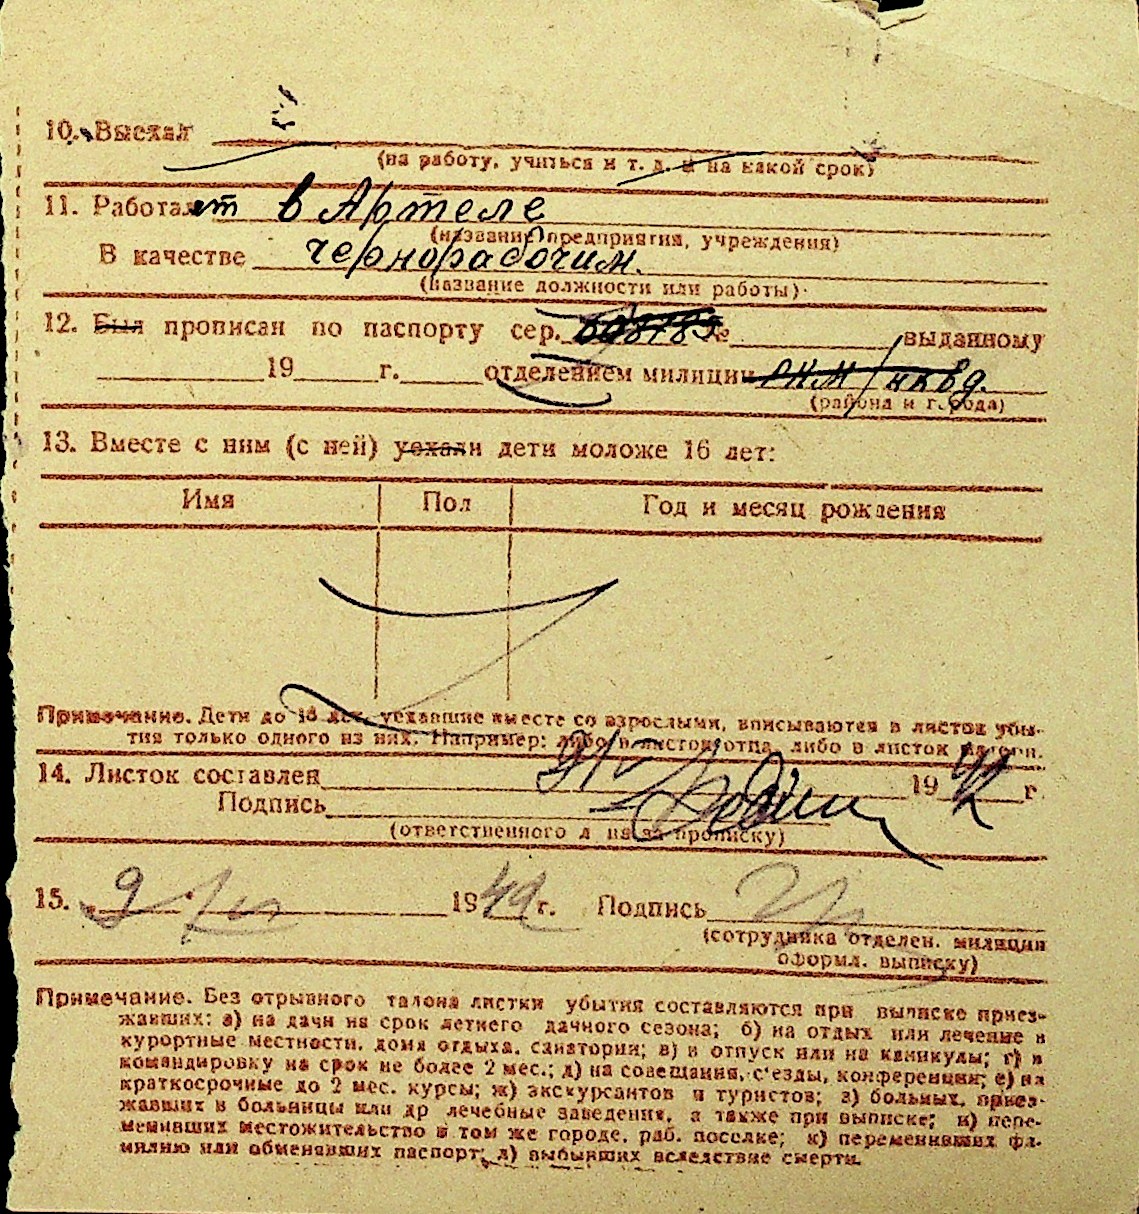 10. Выехал
(на работу, учиться и т. д. и на какой срок)
11. Работает в Артеле
(название предприятия, учреждения)
В качестве чернорабочим.
(название должности или работы)
12. Был прописан по паспорту сер. № выданному
19 г. отделением милиции РКМ/НКВД.
(района и города)
13. Вместе с ним (с ней) уехали дети моложе 16 лет:
Имя Пол Год и месяц рождения
Примечание. Дети до 16 лет, уехавшие вместе со взрослыми, вписываются в листок убы-
тия только одного из них. Например: либо в листок отца, либо в листок матери.
14. Листок составлен 1942 г
Подпись
(ответственного л на за прописку)
15. 9 1942 г. Подпись
(сотрудника отделен. милиции
оформл. выписку)
Примечание. Без отрывного талона листки убытия составляются при выписке приез-
жавших: а) на дачи на срок летнего дачного сезона; б) на отдых или лечение в
курортные местности, дома отдыха, санатории; в) в отпуск или на каникулы; г) в
командировку на срок не более 2 мес.; д) на совещания, с'езды, конференции; е) на
краткосрочные до 2 мес. курсы; ж) экскурсантов и туристов; з) больных, приез-
жавших в больницы или др лечебные заведения, а также при выписке; и) пере-
менивших местожительство в том же городе, раб. поселке; к) переменивших фа-
милию или обменявших паспорт; л) выбывших вследствие смерти.